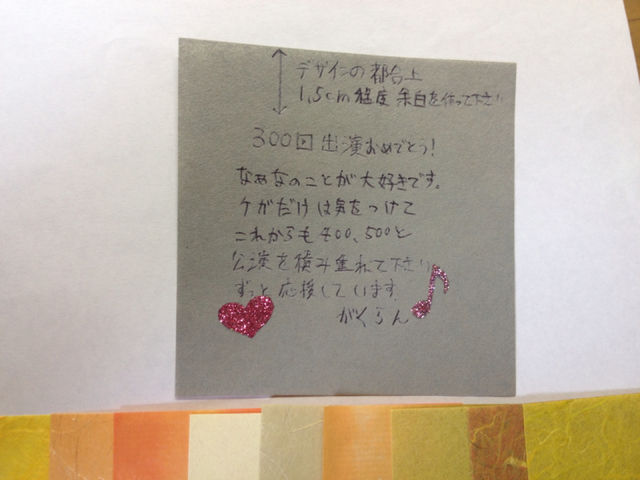 デザインの都合上
1,5cm程度余白を作って下さい
300回出演おめでとう!
なぁなのことが大好きです。
ケガだけは気をつけて
これからも400、500と
公演を積み重ねて下さい
ずっと応援しています
がくらん